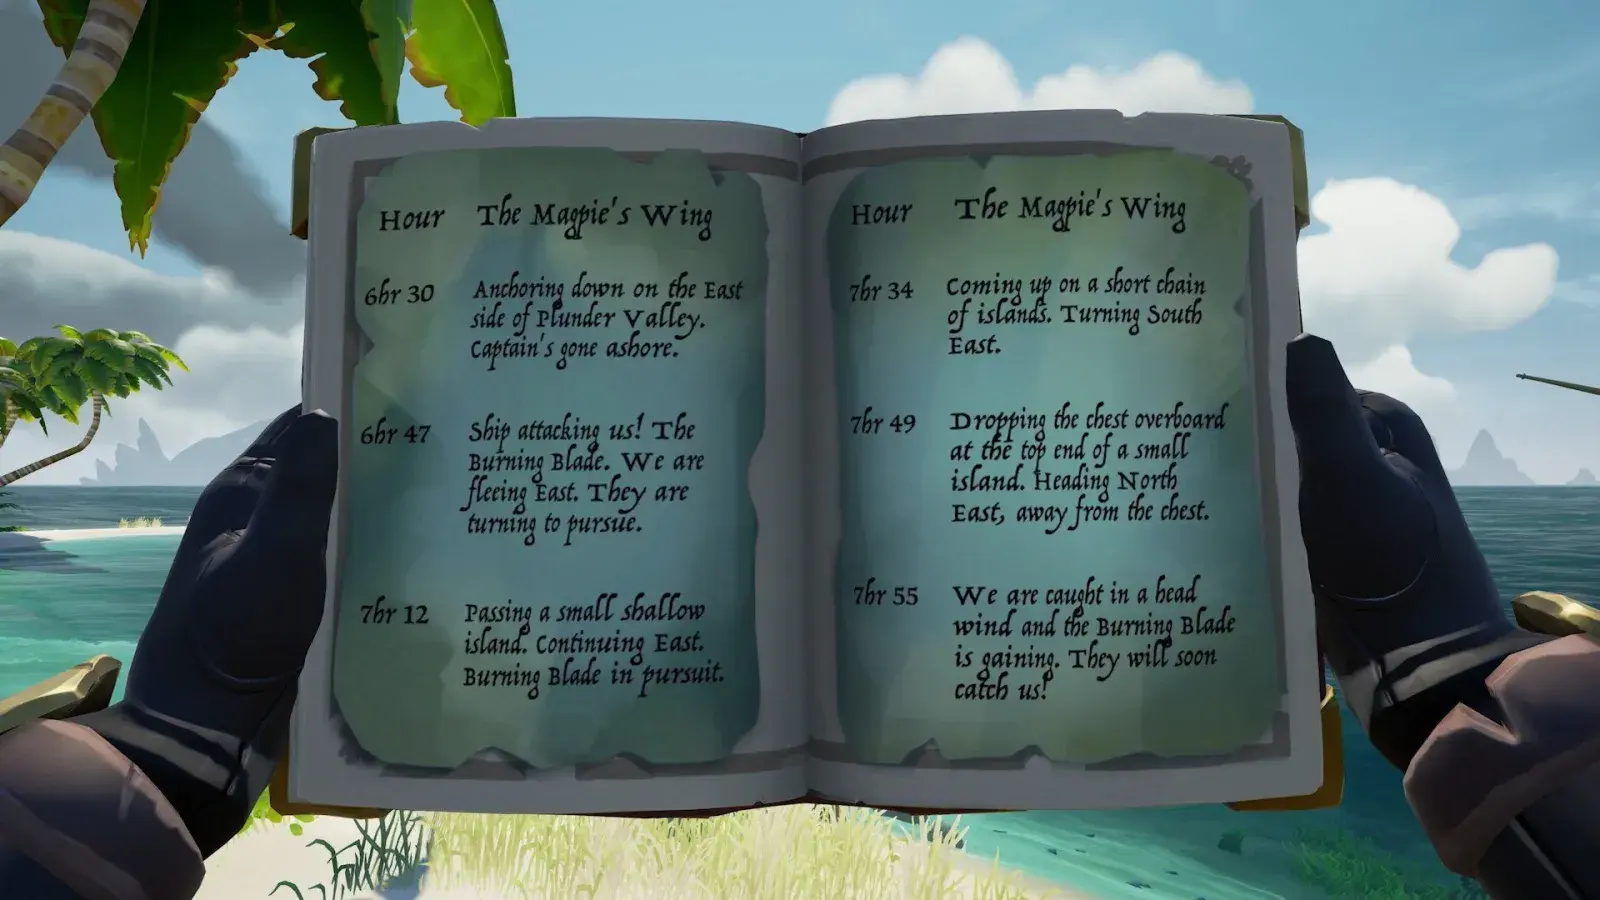 Hour The Magpie's Wing
6hr 30 Anchoring down on the East
side of Plunder Valley.
Captain's gone ashore.
6hr 47 Ship attacking us! The
Burning Blade. We are
fleeing East. They are
turning to pursue.
7hr 12 Passing a small shallow
island. Continuing East.
Burning Blade in pursuit.
Hour The Magpie's Wing
7hr 34 Coming up on a short chain
of islands. Turning South
East.
7hr 49 Dropping the chest overboard
at the top end of a small
island. Heading North
East, away from the chest.
7hr 55 We are caught in a head
wind and the Burning Blade
is gaining. They will soon
catch us!